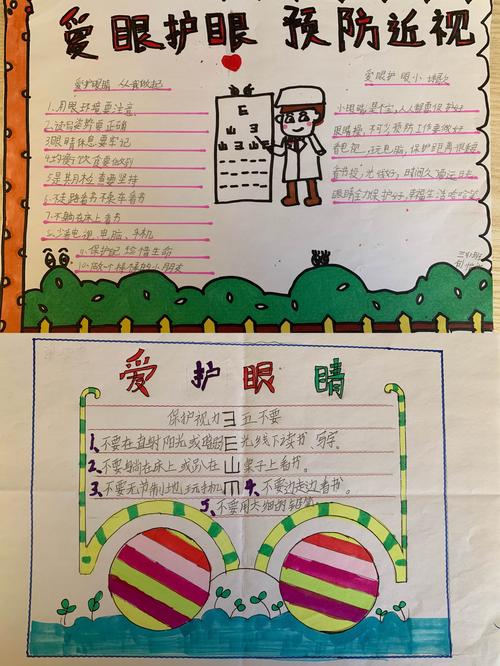 爱眼护眼 预防近视
爱护眼睛 从我做起
1.用眼环境要注意
2.读写姿势要正确
3.眼睛休息要牢记
4.均衡饮食要做到
5.定期检查要坚持
6.走路看书不乘车看书
7.不躺在床上看书
8.少看电视、电脑、手机
9.保护视 珍惜生命
10.做一个棒棒的小朋友
爱眼护眼小
小眼睛是个宝,人人都要保护好
眼睛操,不可少预防工作要做好
看电视,玩电脑,保护距离很重
看书报,光线好,时间久
眼睛全力保护好,幸福生活哈哈笑
E
山 ヨ
爱护眼睛
保护视力 ヨ 五不要
1、不要在直射阳光或暗弱 E 光线下读书、写字。
2、不要躺在床上或趴在 山 桌子上看书。
3、不要无节制地玩手机 m 4、不要边走边看书。
5、不要用太细的铅笔